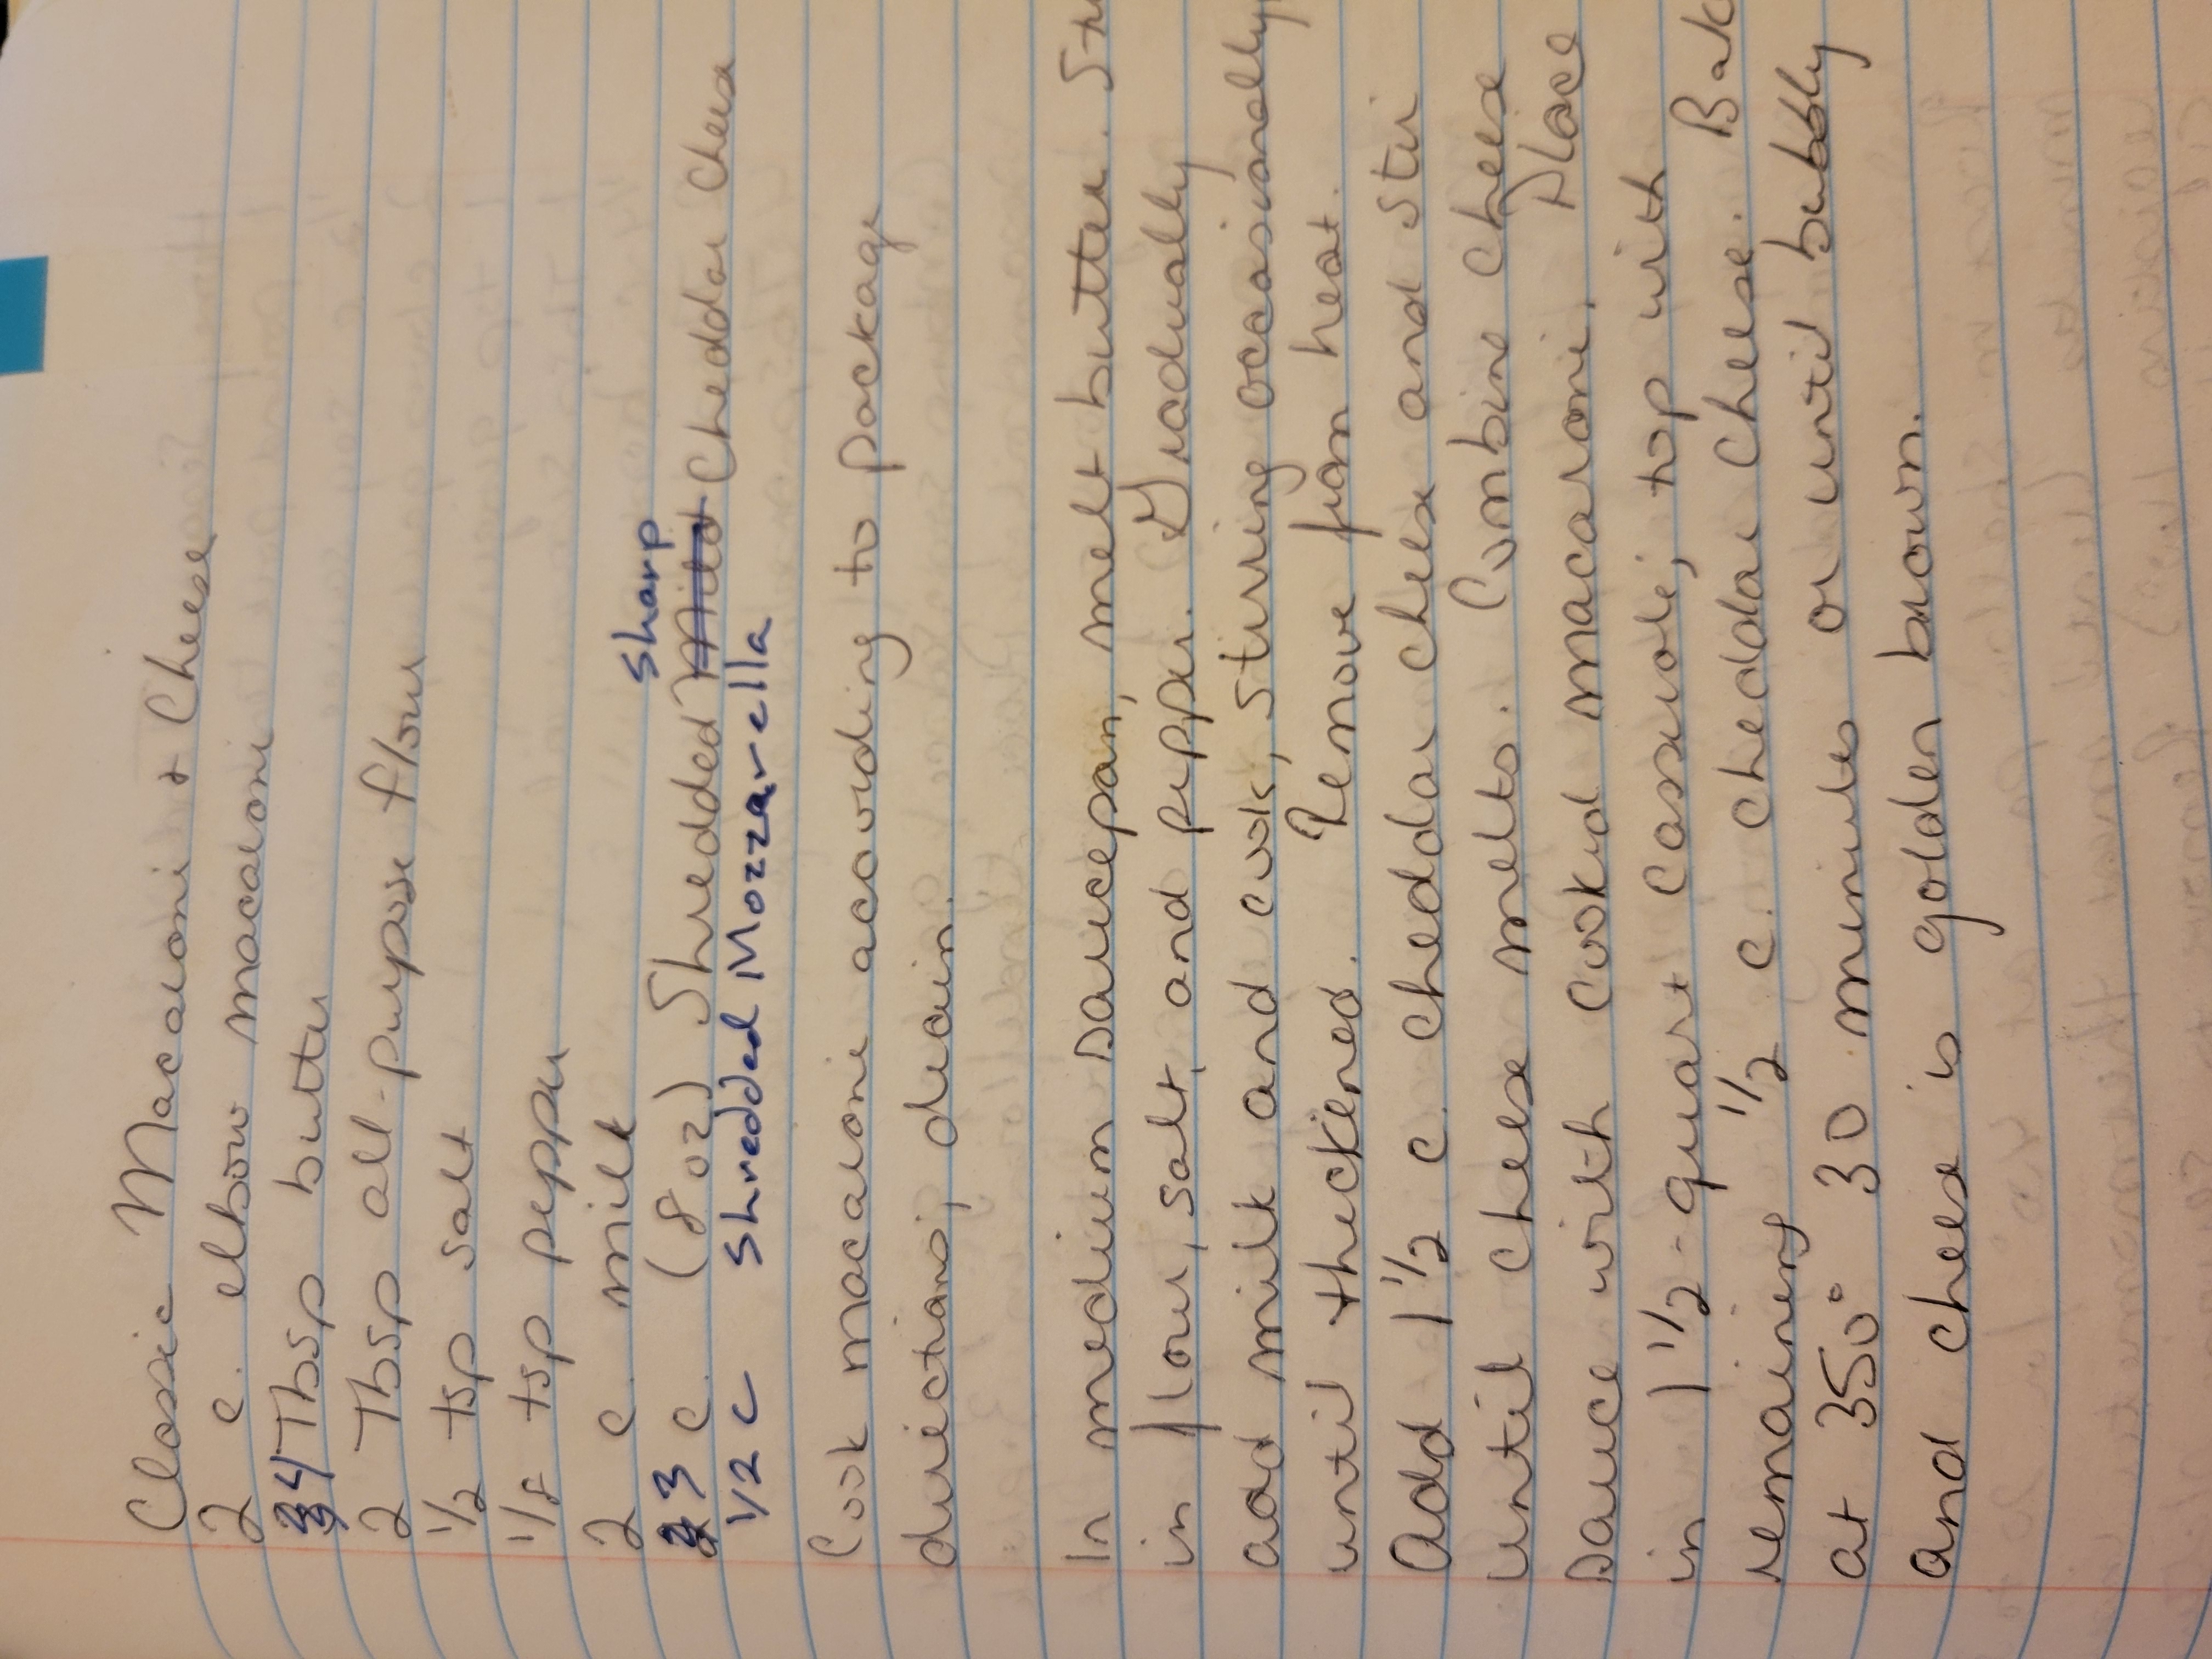 Classic Macaroni + Cheese
2 c. elbow macaroni
4 Tbsp butter
2 Tbsp all-purpose flour
1/2 tsp salt
1/8 tsp pepper
2 c. milk
sharp
3 c. (8 oz) Shredded Mild Cheddar Cheese
1/2 c shredded Mozzarella
Cook macaroni according to package
directions; drain.
In medium saucepan, melt butter.
in flour, salt, and pepper. Gradually
add milk and cook, stirring occasionally,
until thickened. Remove from heat.
Add 1 1/2 c. cheddar cheese and stir
until cheese melts. Combine cheese
sauce with cooked macaroni. Place
in 1 1/2-quart casserole; top with
remaining 1/2 c. cheddar cheese. Bak
at 350° 30 minutes or until bubbly
and cheese is golden brown.